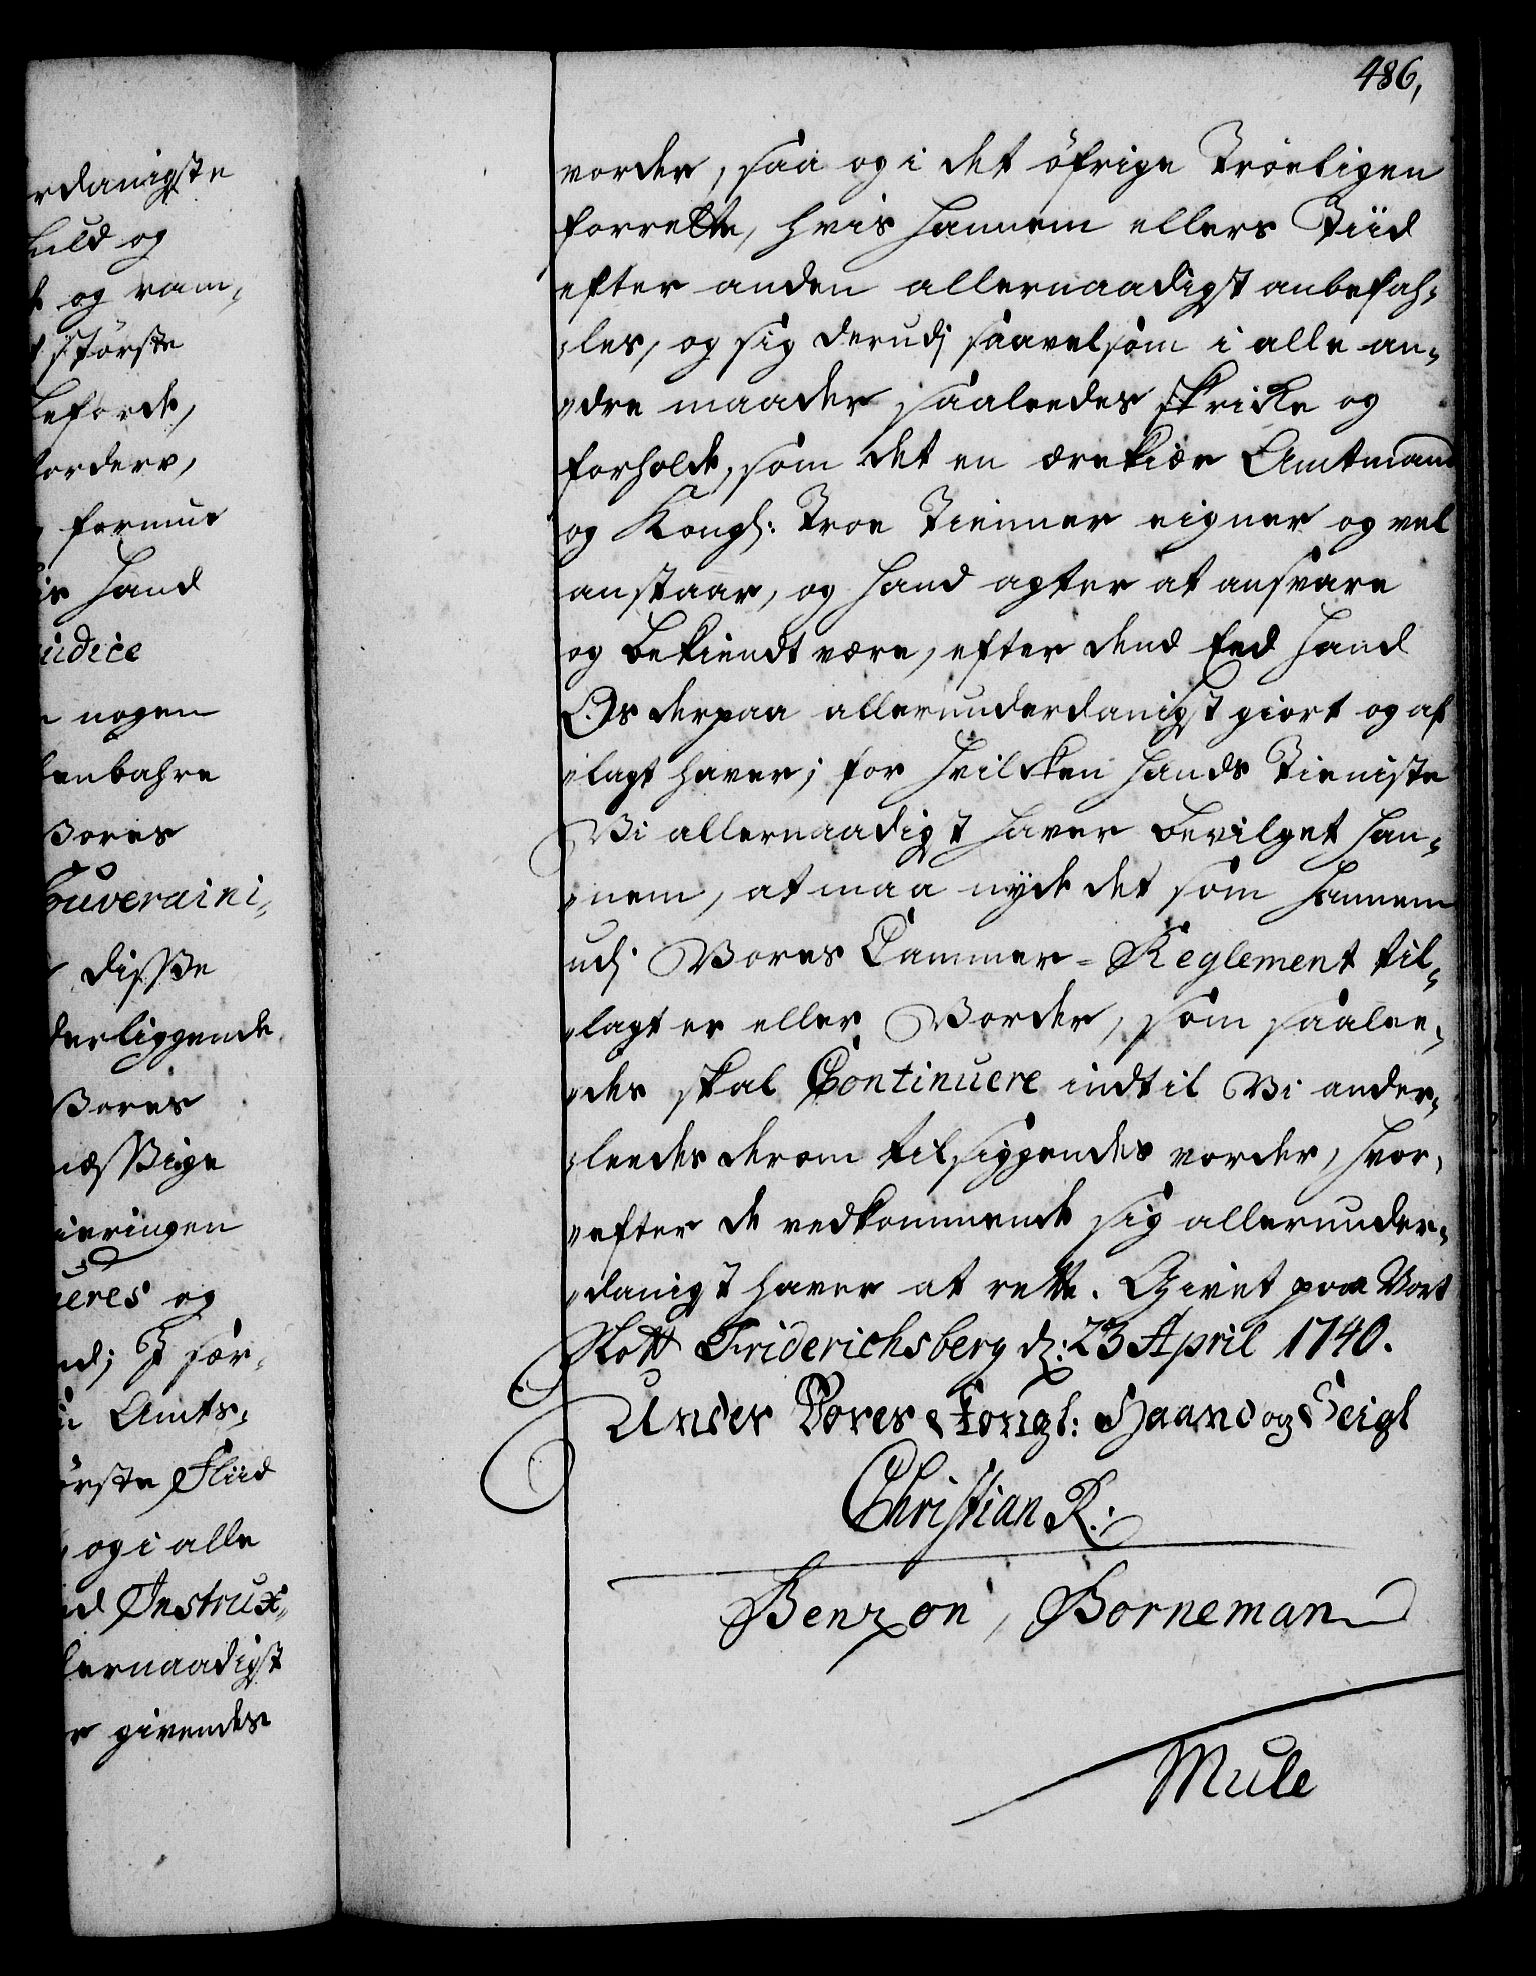 rdanigste
huld og
og ram„
største
beforde,
forderv,
formue
Hand
udice
nogen
enbahre
Vores
Souveraini„
disse
derliggende
Vores
mæssige
ieringen
og
nd; I sær„
Amts„
ørste Fliid
, og i alle
Instrux„
lernaadigst
r givendes
486,
vorder, saa og i det öfrige Tröeligen
forrette, hvis Hannem ellers Tiid
efter anden allernaadigst anbefah„
„les, og sig derudj saavelsom i alle an„
„dre maader saaleedes skricke og
forholde, som det en ærekiær Amtmand
og Kongl: Troe Tienner eigner og vel
anstaar, og Hand agter at ansvare
og bekiendt være, efter dend Eed Hand
Os derpaa allerunderdanigst giort og af
„lagt haver; for hvilcken Hands Tieniste
Vi allernaadigst haver bevilget Han„
„nem, at maa nyde det som Hannem
udj Vores Cammer-Reglement til„
„lagt er eller Vorder, som saalee„
„des skal Continuere indtil Vi ander„
„leedes derom tilsiggendes vorder, hvor„
„efter de vedkommende sig allerunder„
„danigst haver at rette. Givet paa Vort
Slott Friderichsberg d: 23 April 1740.
Under Vores Kongl: Haand og Seigl
Christian R:
Benzon, Borneman
Mule